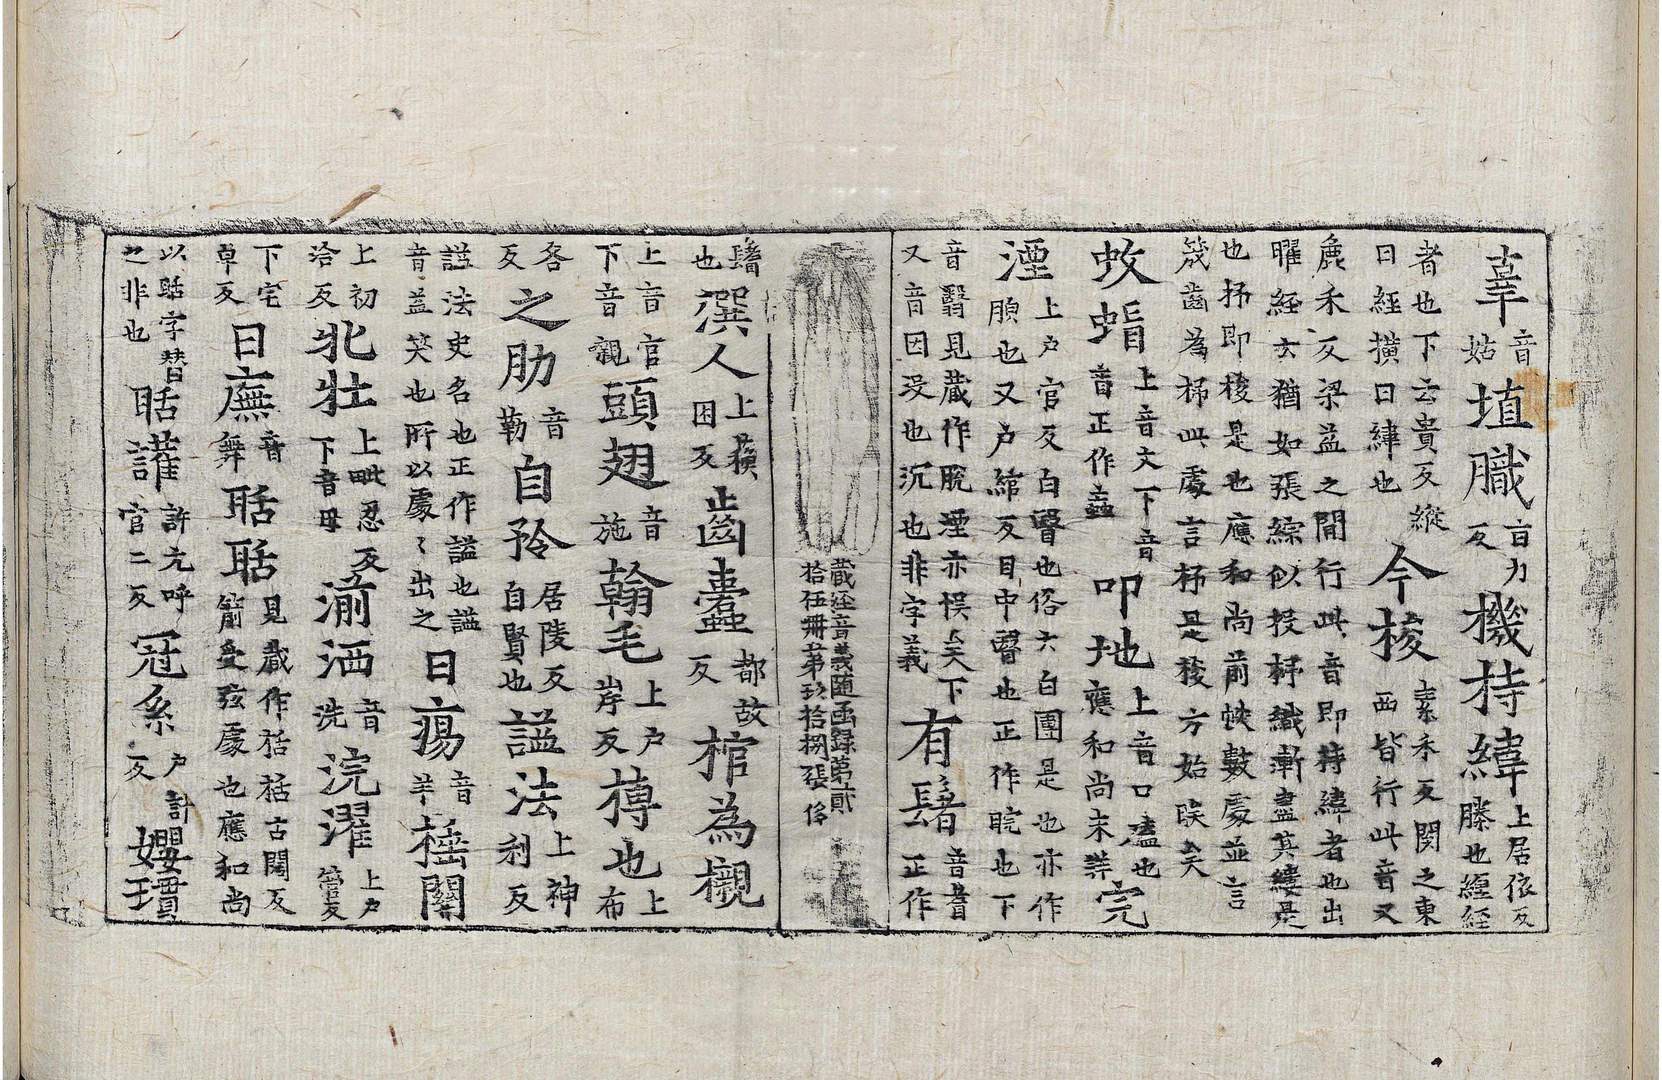 辜音姑埴職亩力反機持緯上居依反滕也緾經
者也下云貴反縱曰經横曰緯也今梭素禾反関之東西皆行此音又
麁禾反梁益之間行此音即持緯者也出曜經云猶如張綜似投杼織漸盡其縷是
也杼即梭是也應和尚前帙數處並言筬齒為杼此處言杼是梭方始䀹矣
蚊蝐上音文下音音正作蝱叩地上音口磕也應和尚未詳完
湮上户官反白瞖也俗六白團是也亦作腴也又户綰反目中瞖也正作睆也下
音翳見蔵作脘湮亦悮矣下又音因没也沉也非字義有鬐音耆正作
蔵經音義随函録第貳拾伍冊第玖拾捌張 侈
鬐也𤠔人上蘋困反齒蠹都故反棺為櫬
上音官下音親頭翅音施翰毛上户岸反摶也上布
各反之肋音勒自矜居陵反自賢也謚法上神利反
謚法史名也正作謚也謚音益笑也所以處〻出之日瘍音羊極闇
上初洽反牝牡上毗忍反下音母湔洒音洗浣濯上户管反
下宅卓反日廡音舞聒聒見蔵作栝栝古闊反箭受弦處也應和尚
以聒字替之非也聒讙許元呼官二反冠系户計反瓔璝